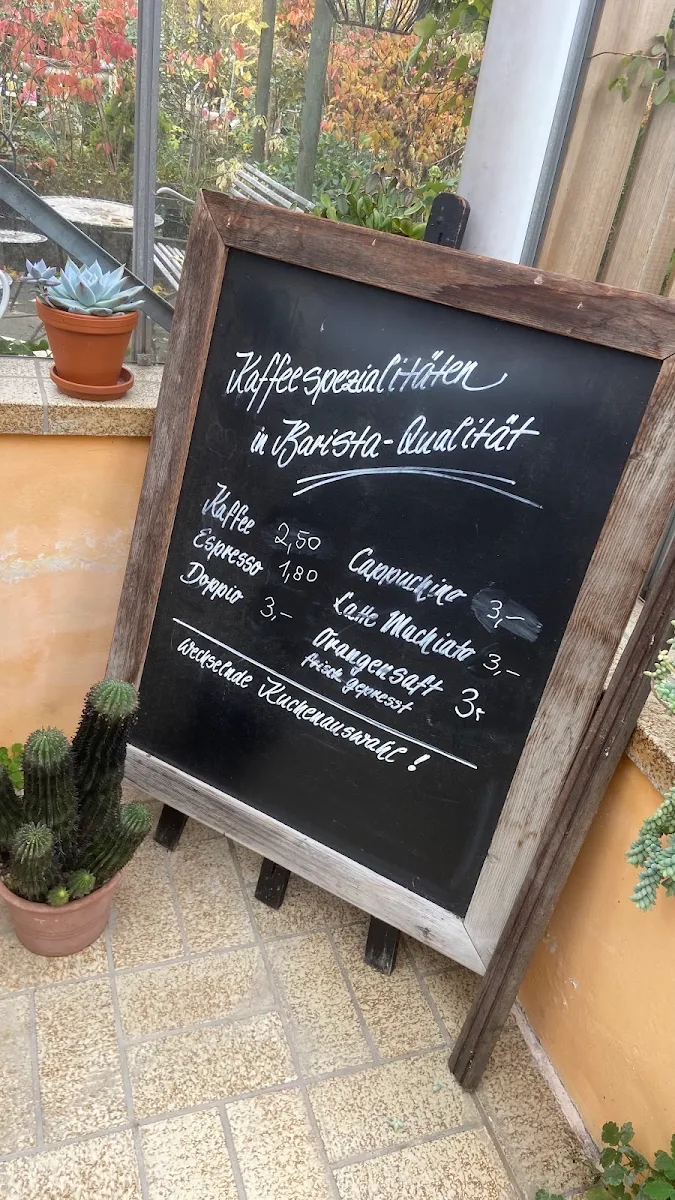 Kaffeespezialitäten
in Barista-Qualität
Kaffee 2,50
Espresso 1,80
Doppio 3,-
Cappuchino 3,-
Latte Machiato 3,-
Orangensaft 3,-
frisch gepresst
wechselnde Kuchenauswahl!